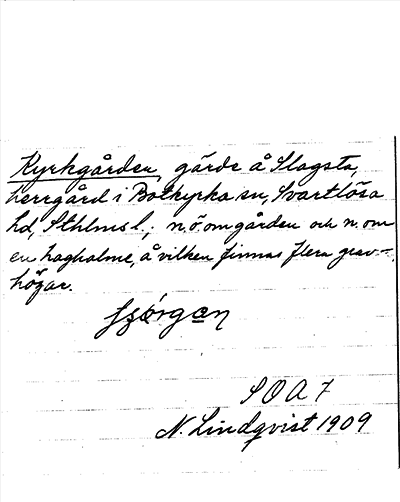 Kyrkgården, gärde å Slagsta,
herrgård i Botkyrka sn, Svartlösa
hd, Sthlms l.; n.ö. om gården och n. om
en hagholme, å vilken finnas flera grav-
högar.
S O A 7
N. Lindqvist 1909